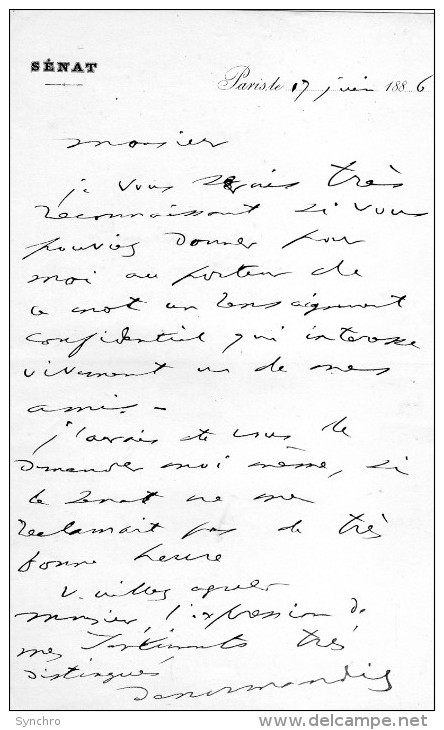 SÉNAT
Paris, le 17 juin 1886
Monsieur
je vous serais très
reconnaissant si vous
pouviez donner pour
moi au porteur de
ce mot un renseignement
confidentiel qui intéresse
vivement un de mes
amis –
j'aurais été vous le
demander moi même, si
le Sénat ne me
réclamait pas de très
bonne heure
Veuillez agréer
monsieur, l'expression de
mes sentiments très
distingués
Denormandie
Synchro
delcampe.net